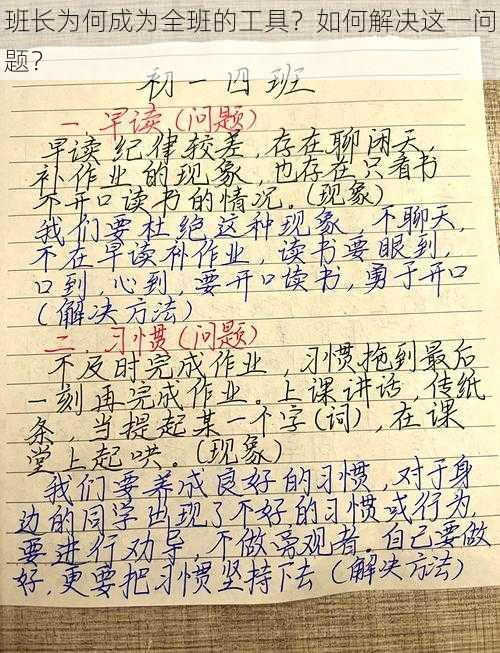 班长为何成为全班的工具？如何解决这一问
题？
初一四班
一.早读(问题)
早读纪律较差,存在聊闲天,
补作业的现象,也存在只看书
不开口读书的情况。(现象)
我们要杜绝这种现象,不聊天,
不在早读补作业,读书要眼到,
口到,心到,要开口读书,勇于开口
(解决方法)
二.习惯(问题)
不及时完成作业,习惯拖到最后
一刻再完成作业。上课讲话,传纸
条,当提起某一个字(词),在课
堂上起哄。(现象)
我们要养成良好的习惯,对于身
边的同学出现了不好的习惯或行为,
要进行劝导,不做旁观者,自己要做
好,更要把习惯坚持下去(解决方法)